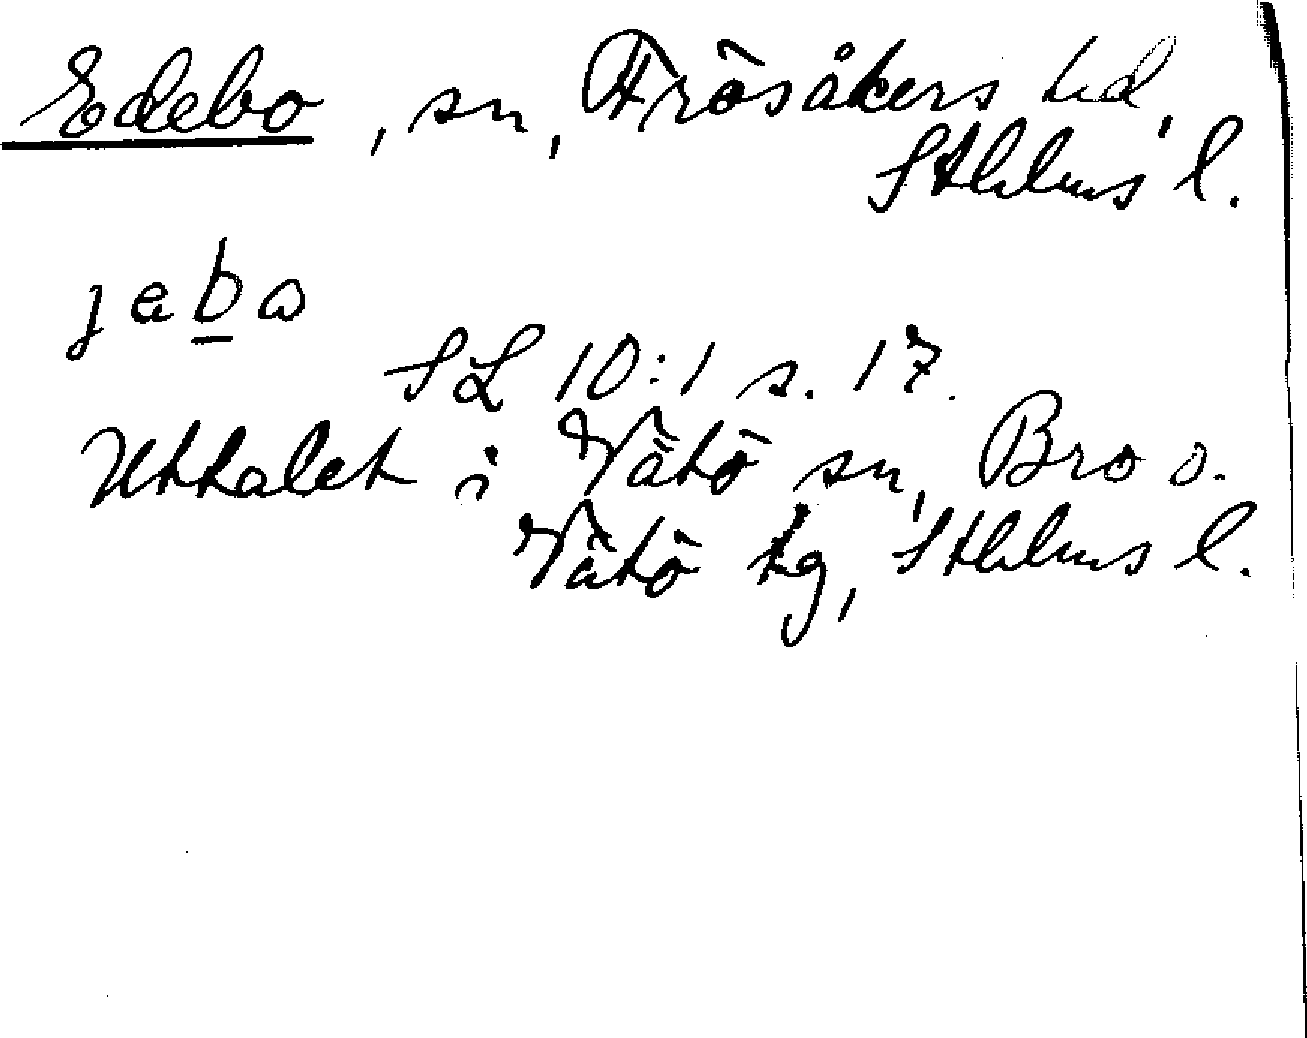 Edebo, sn, Frösåkers hd,
Sthlms l.
jabo
SL 10:1 s. 17.
Uttalet i Vätö sn, Bro o.
Vätö tg, Sthlms l.